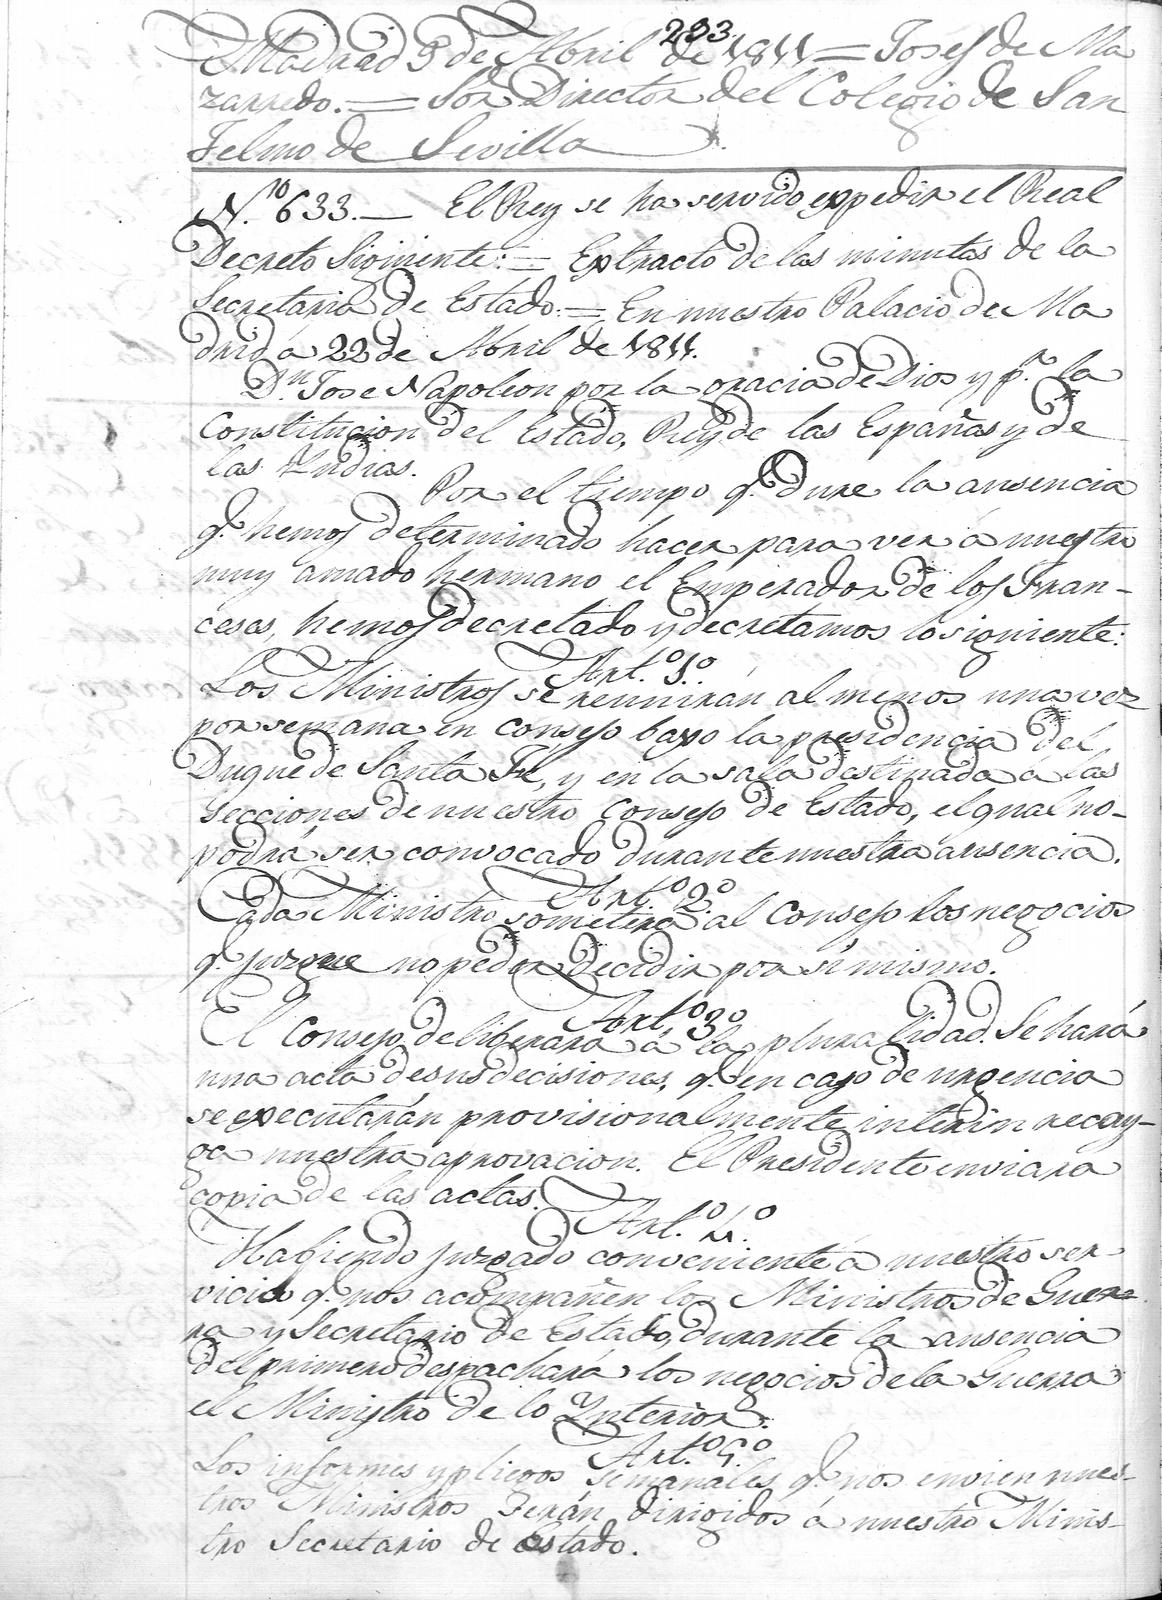 293.
Madrid 9 de Abril de 1811 = Josef de Ma
zarredo. = Sor Director del Colegio de San
Telmo de Sevilla
N.º 633. — El Rey se ha servido expedir el Real
Decreto Siguiente: = Extracto de las minutas de la
Secretaria de Estado. = En nuestro Palacio de Ma
drid á 22 de Abril de 1811.
Dn. Jose Napoleon por la gracia de Dios y pr. la
Constitucion del Estado, Rey de las Españas y de
las Yndias.
Por el tiempo q.e dure la ausencia
q.e hemos determinado hacer para ver á nuestro
muy amado hermano el Emperador de los Fran-
ceses, hemos decretado y decretamos lo siguiente:
Art.º 1.º
Los Ministros se reunirán al menos una vez
por semana en consejo baxo la presidencia del
Duque de Santa Fé, y en la sala destinada á las
secciones de nuestro Consejo de Estado, el qual no-
podrá ser convocado durante nuestra ausencia.
Art.º 2.º
Cada Ministro someterá al Consejo los negocios
q.e juzgue no peder decidir por si mismo.
Art.º 3.º
El Consejo deliberara á la pluralidad. Se hará
una acta de sus decisiones, q.e en caso de urgencia
se executarán provisionalmente interin recay-
ga nuestra aprovacion. El Presidente enviara
copia de las actas.
Art.º 4.º
Habiendo juzgado conveniente á nuestro ser-
vicio q.e nos acompañen los Ministros de Guer-
ra y Secretario de Estado, durante la ausencia
del primero despachará los negocios de la Guerra
el Ministro de lo Ynterior.
Art.º 5.º
Los informes y pliegos semanales q.e nos envien nues-
tros Ministros serán dirigidos á nuestro Minis-
tro Secretario de Estado.